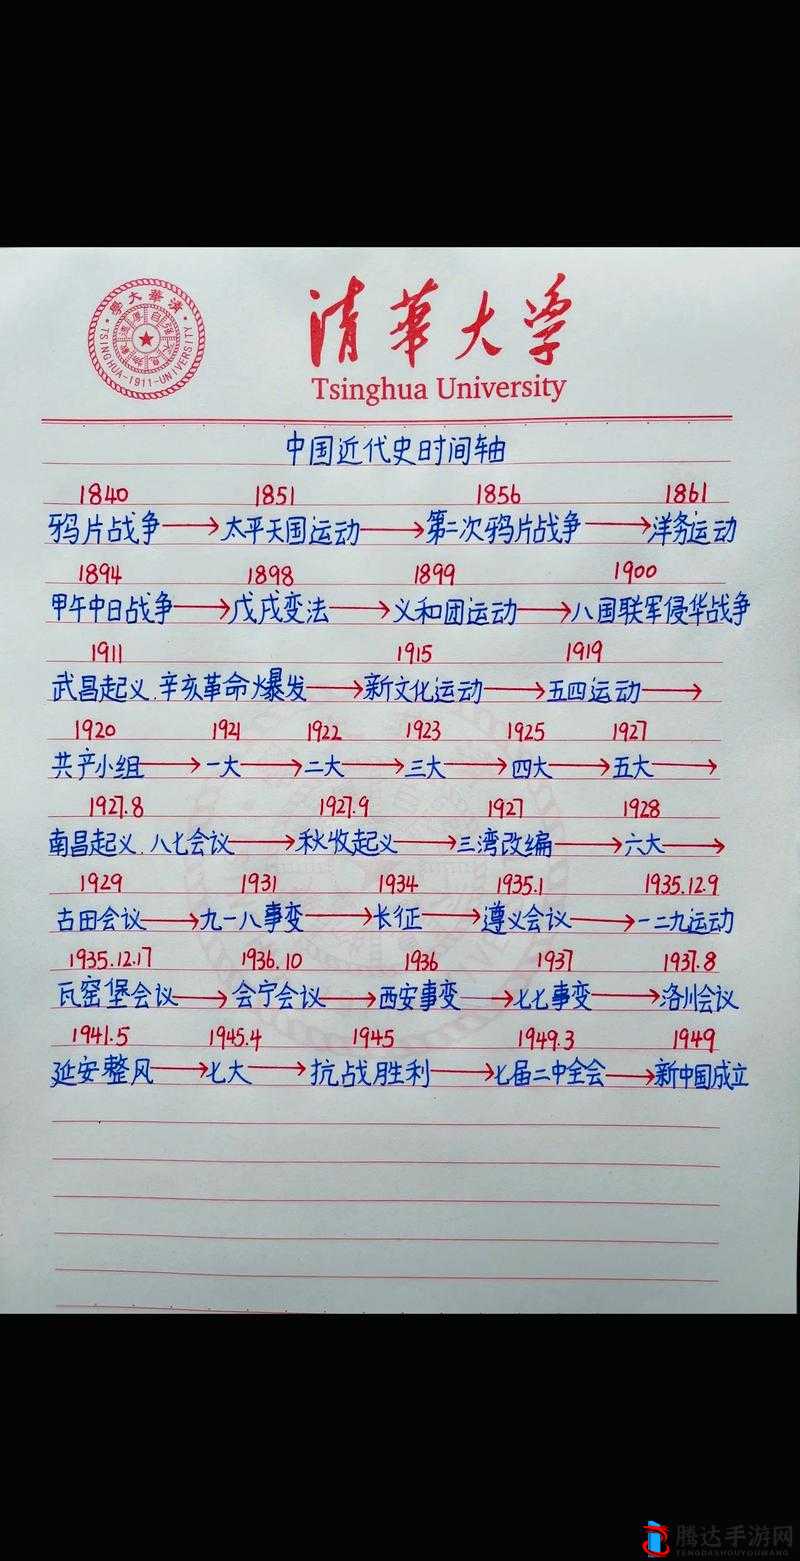 清華大學
TSINGHUA-1911-UNIVERSITY
清華大学
Tsinghua University
中国近代史时间轴
1840 1851 1856 1861
鸦片战争→太平天国运动→第二次鸦片战争→洋务运动
1894 1898 1899 1900
甲午中日战争→戊戌变法→义和团运动→八国联军侵华战争
1911 1915 1919
武昌起义.辛亥革命爆发→新文化运动→五四运动→
1920 1921 1922 1923 1925 1927
共产小组→一大→二大→三大→四大→五大→
1927.8 1927.9 1927 1928
南昌起义.八七会议→秋收起义→三湾改编→六大→
1929 1931 1934 1935.1 1935.12.9
古田会议→九一八事变→长征→遵义会议→一二九运动
1935.12.17 1936.10 1936 1937 1937.8
瓦窑堡会议→会宁会议→西安事变→七七事变→洛川会议
1941.5 1945.4 1945 1949.3 1949
延安整风→七大→抗战胜利→七届二中全会→新中国成立
腾达手游网
TENGDASHOUYOUWANG